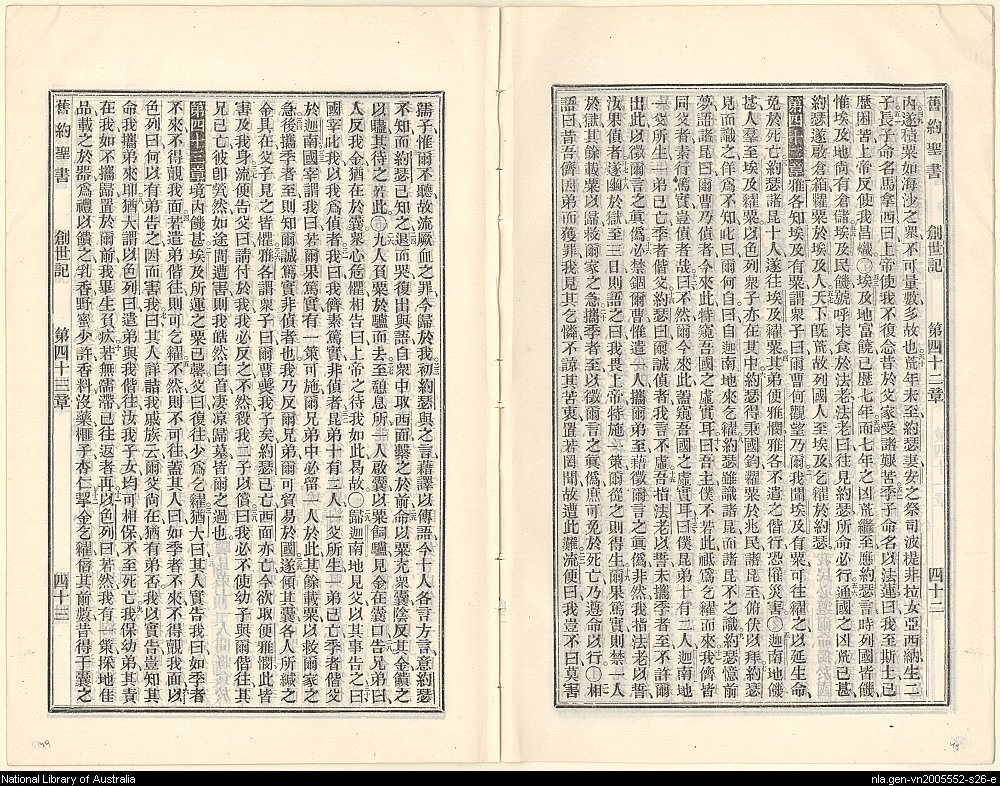 舊約聖書 創世記 第四十二章 四十二
內遂積粟如海沙之衆不可量數多故也荒年未至約瑟妻安之祭司波提非拉女亞西納生二
子長子命名馬拿西曰上帝使我不復念昔於父家受諸艱苦季子命名以法蓮曰我至斯土已
歷困苦上帝反使我昌熾〇埃及地富饒已歷七年而七年之凶荒繼至應約瑟言時列國皆饑
惟埃及地尚有倉儲埃及民饑號呼求食於法老法老曰往見約瑟所命必行通國之凶荒已甚
約瑟遂啟倉箱糶粟於埃及人天下旣荒故列國人至埃及乞糴於約瑟
第四十二章雅各知埃及有粟謂衆子曰爾曹何觀望乃爾我聞埃及有粟可往糴之以延生命
免於死亡約瑟諸昆十人遂往埃及糴粟其弟便雅憫雅各不遣之偕行恐罹災害〇迦南地饑
甚人羣至埃及糴粟以色列衆子亦在其中約瑟得秉國鈞糶粟於兆民諸昆至俯伏以拜約瑟
見而識之佯爲不知叱曰爾何自曰自迦南地來乞糴約瑟雖識諸昆而諸昆不之識約瑟憶前
夢語諸昆曰爾曹乃偵者今來此特窺吾國之虛實耳曰吾主僕不若此祗爲乞糴而來我儕皆
同父者素行篤實豈偵者哉曰不然爾今來此蓋窺吾國之虛實耳曰僕昆弟十有二人迦南地
一父所生一弟已亡季者偕父約瑟曰我言爾誠偵者我言不虛吾指法老以誓末攜季者至不許爾
出此以徵爾言之眞僞必禁錮爾曹惟遣一人攜幼弟至藉徵爾言之眞僞非然我指法老以誓
汝果偵者遂幽於獄至三日則語之曰我畏上帝特施一策爾從之則得生爾果篤實則禁一人
於獄其餘載粟以歸救爾家之急攜季者至以徵爾言之眞僞庶可免於死亡乃遵命以行〇相
語曰昔吾儕因弟而獲罪我見其乞憐不諒其苦衷置若罔聞故遭此難流便曰我豈不曰莫害
孺子惟爾不聽故流厥血之罪今歸於我初約瑟與之言藉譯以傳語今十人各言方言意約瑟
不知而約瑟已知之退而哭復出與語自衆中取西面繫之於前命以粟充衆囊陰反其金饋之
以贐其待之若此〇九人負粟於驢而去至憩息所一人啟囊以粟飼驢見金在囊口告兄弟曰
人反我金猶在於囊衆心危懼相告曰上帝之待我如此曷故〇歸迦南地見父以其事告之曰
國宰叱我以我爲偵者我曰我儕素篤實非偵者昆弟十有二人一父所生一弟已亡季者偕父
於迦南國宰謂我曰若爾果篤實有一策可施爾兄弟中必留一人於此其餘載粟以救爾家之
急後攜季者至則知爾誠篤實非偵者也我乃反爾兄弟爾可貿易於國遂傾其囊各人所緘之
金其在父子見之皆懼雅各謂衆子曰爾曹喪我子矣約瑟已亡西面亦亡今欲取便雅憫此皆
害及我身流便告父曰請付於我我必反之不然殺我二子以償曰我必不使幼子與爾偕往其
兄已亡彼卽煢然如途間遭害則我皤然白首凄凉歸墓皆爾之過也
第四十三章境內饑甚埃及所運之粟已罄父曰復往少爲乞糴猶大曰其人實告我曰如季者
不來不得覿我面若遣弟偕往則可乞糴不然則不可往蓋其人曰如季者不來不得覿我面以
色列曰何以有弟告之因而害我曰其人詳詰我戚族云爾父尚在猶有弟否我以實告豈知其
命我攜弟來耶猶大謂以色列曰遣弟與我偕往汝我子女均可相保不至死亡我保幼弟其責
在我如不攜歸置於爾前我畢生負疚若無濡滯已往返者再以色列曰若然我有一策採地佳
品載之於器爲禮以饋之乳香野蜜少許香料沒藥榧子杏仁挈金乞糴倍其前數昔得于囊之
舊約聖書 創世記 第四十三章 四十三
National Library of Australia
nla.gen-vn2005552-s26-e